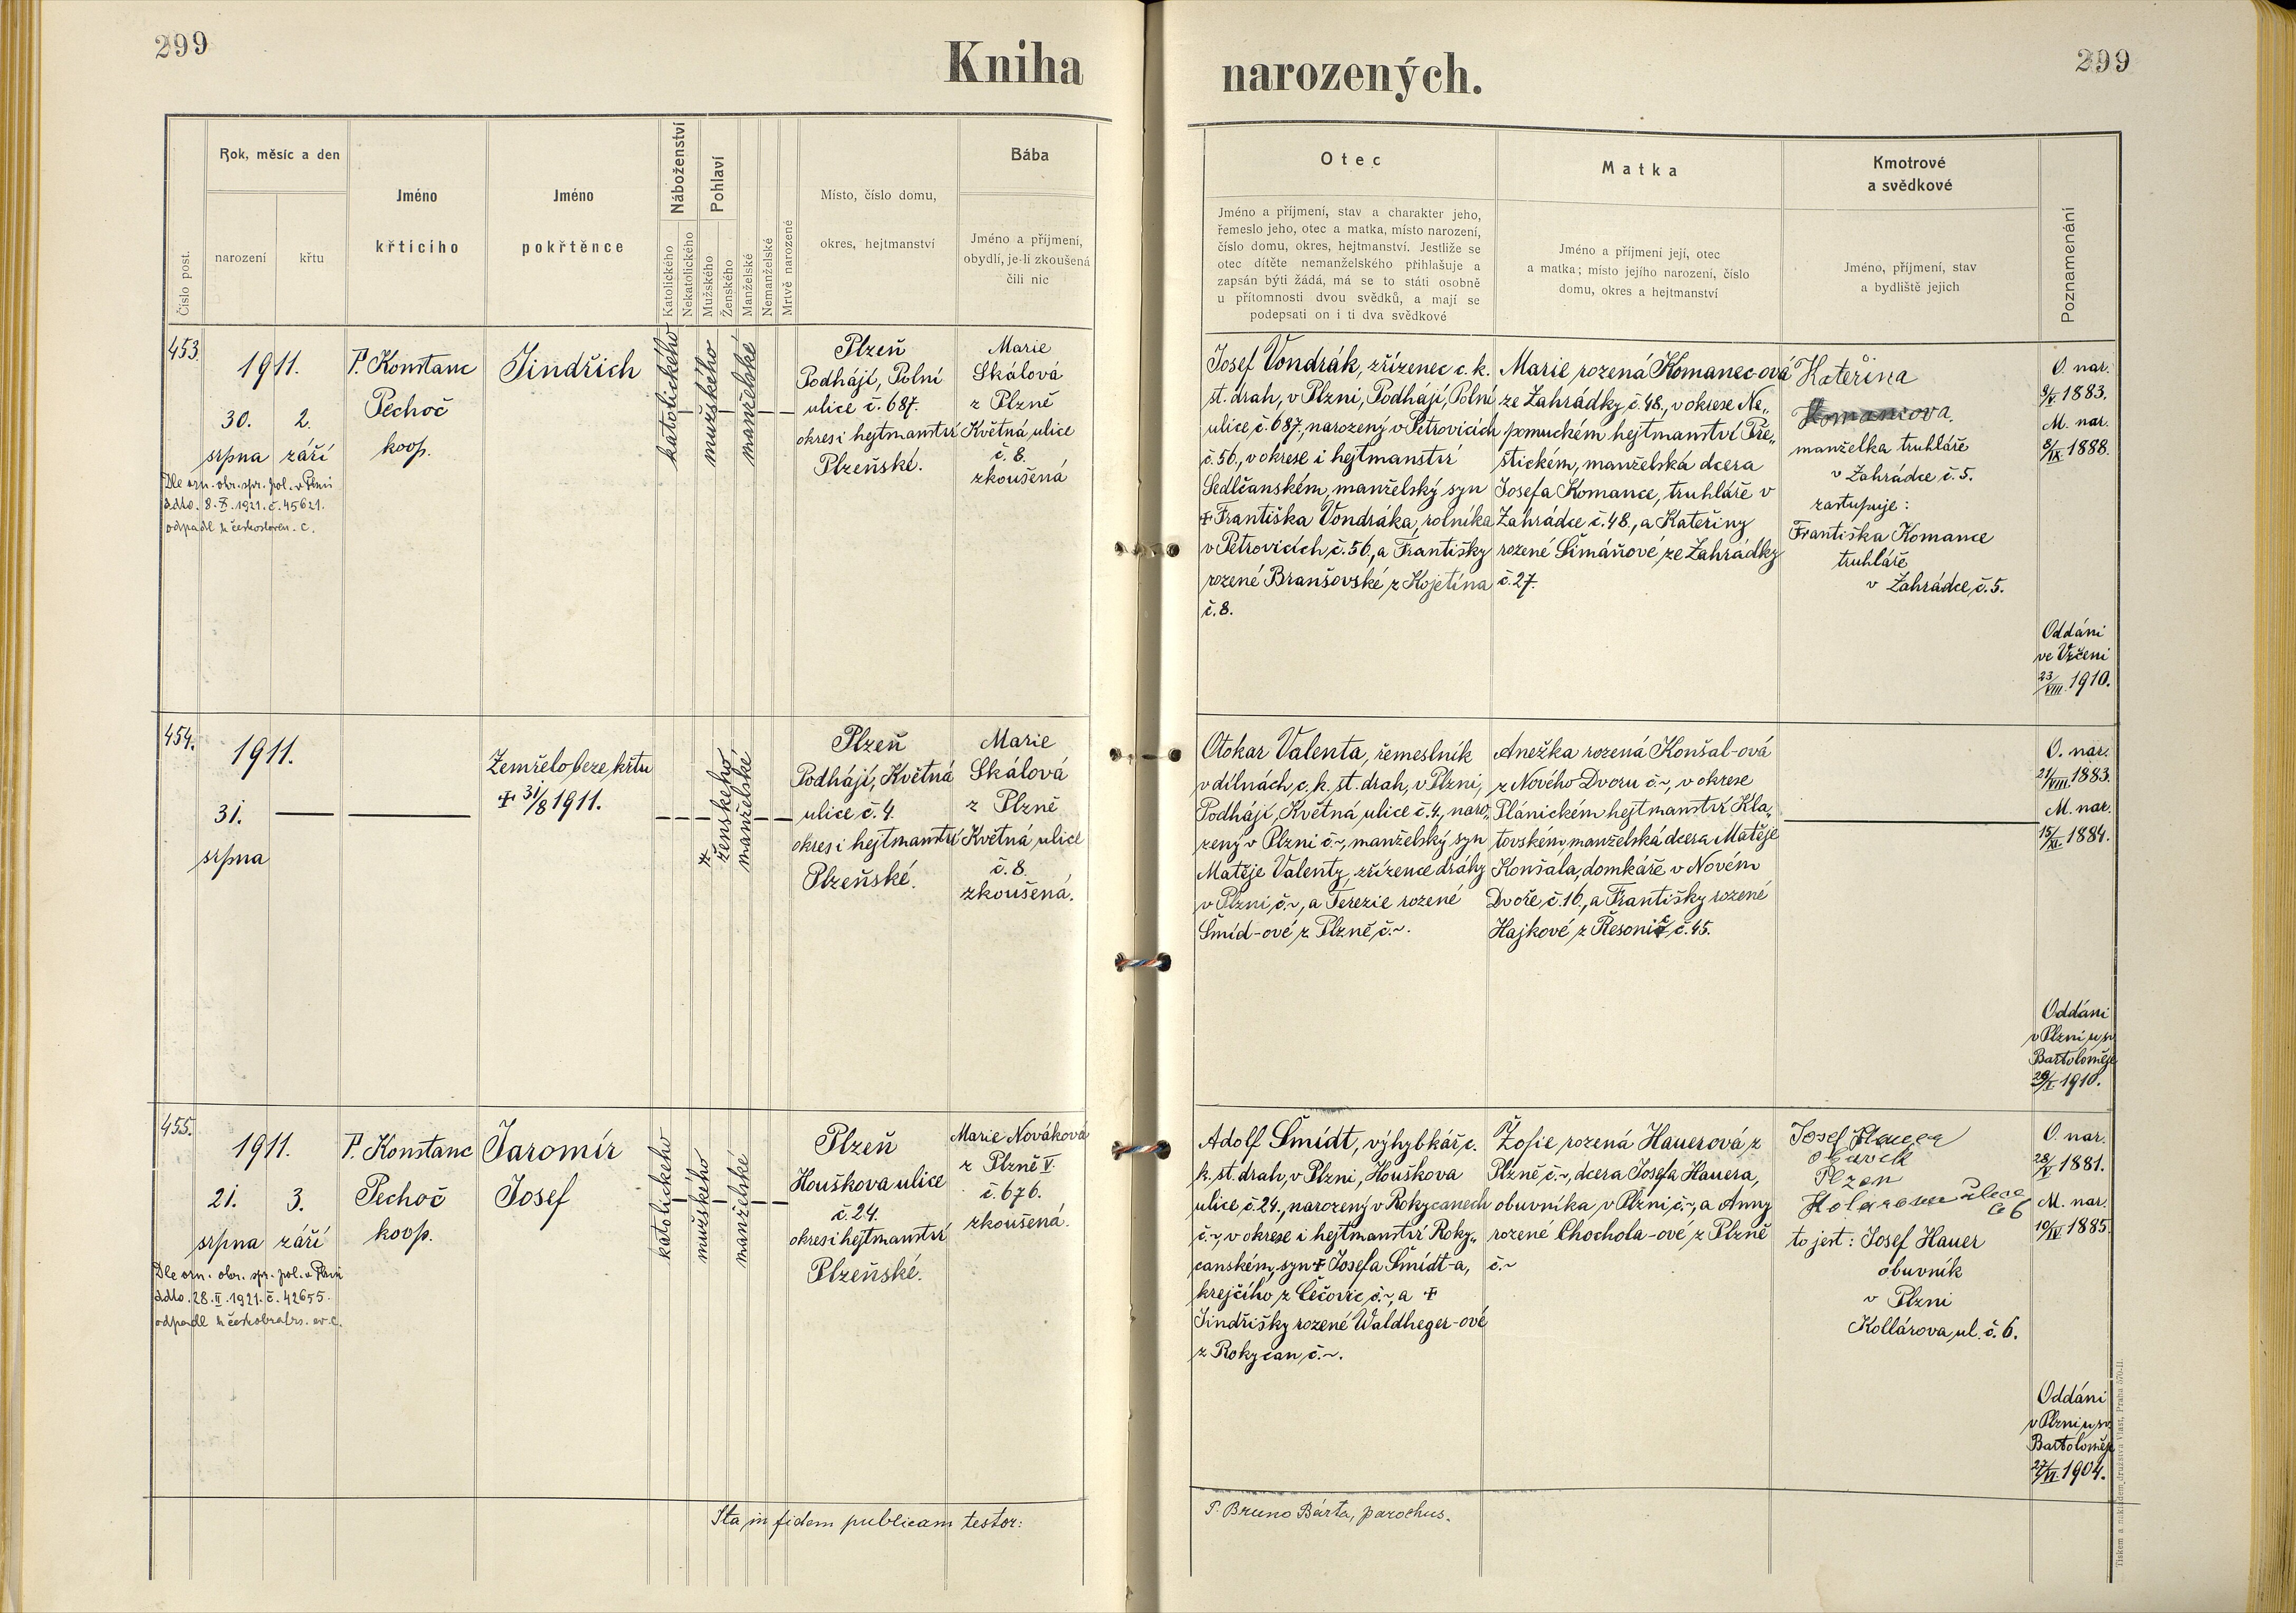 299
Kniha narozených.
299
Číslo post.
Rok, měsíc a den
narození
křtu
Jméno
křtícího
Jméno
pokřtěnce
Náboženství
Katolického
Nekatolického
Pohlaví
Mužského
Ženského
Manželské
Nemanželské
Mrtvě narozené
Místo, číslo domu,
okres, hejtmanství
Bába
Jméno a příjmení,
obydlí, je-li zkoušená
čili nic
Otec
Jméno a příjmení, stav a charakter jeho,
řemeslo jeho, otec a matka, místo narození,
číslo domu, okres, hejtmanství. Jestliže se
otec dítěte nemanželského přihlašuje a
zapsán býti žádá, má se to státi osobně
u přítomnosti dvou svědků, a mají se
podepsati on i ti dva svědkové
Matka
Jméno a příjmení její, otec
a matka; místo jejího narození, číslo
domu, okres a hejtmanství
Kmotrové
a svědkové
Jméno, příjmení, stav
a bydliště jejich
Poznamenání
453.
1911.
30. 2.
srpna září
Dle ozn. obv. spr. pol. v Plzni
ddto. 8.X.1921. č. 45621.
odpadl k českosloven. c.
P. Konstanc
Pechoč
koop.
Jindřich
katolického
mužského
manželské
Plzeň
Podhájí, Polní
ulice č. 687.
okres i hejtmanství
Plzeňské.
Marie
Skálová
z Plzně
Květná ulice
č. 8.
zkoušená
Josef Vondrák, zřízenec c. k.
st. drah, v Plzni, Podhájí, Polní
ulice, č. 687., narozený v Petrovicích
č. 56., v okrese i hejtmanství
Sedlčanském, manželský syn
+ Františka Vondráka, rolníka
v Petrovicích, č. 56., a Františky
rozené Branšovské, z Kojetína
č. 8.
Marie rozená Komanec-ová
ze Zahrádky č. 48., v okrese Ne„
pomuckém hejtmanství Pře„
štickém, manželská dcera
Josefa Komance, truhláře v
Zahrádce č. 48., a Kateřiny
rozené Šimáňové, ze Zahrádky
č. 27.
Kateřina
Komancova.
manželka truhláře
v Zahrádce č. 5.
zastupuje:
Františka Komance
truhláře
v Zahrádce, č. 5.
O. nar.
9/V. 1883.
M. nar.
8/IX. 1888.
Oddáni
ve Vrčeni
23/VIII. 1910.
454.
1911.
31.
srpna
Zemřelo beze křtu
+ 31/8 1911.
ženského
manželské
Plzeň
Podhájí, Květná
ulice č. 4.
okres i hejtmanství
Plzeňské.
Marie
Skálová
z Plzně
Květná ulice
č. 8.
zkoušená.
Otokar Valenta, řemeslník
v dílnách, c. k. st. drah, v Plzni,
Podhájí, Květná ulice č. 4., naro„
zený v Plzni č. ~, manželský syn
Matěje Valenty, zřízence dráhy
v Plzni, č. ~, a Terezie rozené
Šmíd-ové z Plzně, č. ~.
Anežka rozená Konšal-ová
z Nového Dvoru č. ~, v okrese
Plánickém hejtmanství Kla„
tovském, manželská dcera Matěje
Konšala, domkáře v Novém
Dvoře, č. 16., a Františky rozené
Hajkové z Řesonic, č. 45.
O. nar.
21/VIII. 1883.
M. nar.
15/XI. 1884.
Oddáni
v Plzni u sv.
Bartoloměje
1910.
455.
1911.
21. 3.
srpna září
Dle ozn. obv. spr. pol. v Plzni
ddto. 28.II.1921. č. 42655.
odpadl k českobratrs. ev. c.
P. Konstanc
Pechoč
koop.
Jaromír
Josef
katolického
mužského
manželské
Plzeň
Houškova ulice
č. 24.
okres i hejtmanství
Plzeňské.
Marie Nováková
z Plzně V.
č. 676.
zkoušená.
Adolf Šmídt, výhybkář, c.
k. st. drah, v Plzni, Houškova
ulice, č. 24., narozený v Rokycanech
č. ~, v okrese i hejtmanství Roky„
canském, syn + Josefa Šmídt-a,
krejčího, z Čečovic, č. ~, a +
Jindřišky rozené Waldheger-ové
z Rokycan, č. ~.
Žofie rozená Hauerová, z
Plzně, č. ~, dcera Josefa Hauera,
obuvníka, v Plzni, č. ~, a Anny
rozené Chochola-ové z Plzně
č. ~
Josef Hauer
Plzen
to jest: Josef Hauer
obuvník
v Plzni
Kollárova ul. č. 6.
O. nar.
28/V. 1881.
M. nar.
10/IV. 1885.
Oddáni
v Plzni u sv.
Bartoloměje
27/VI. 1904.
Ita in fidem publicam testor:
P. Bruno Bárta, parochus.
Tiskem a nákladem družstva Vlast, Praha 570-II.